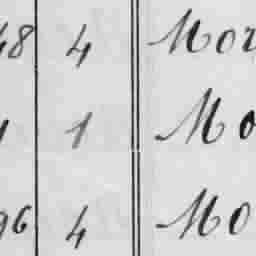 48 4 Mor
1 1 Mo
96 4 Mo